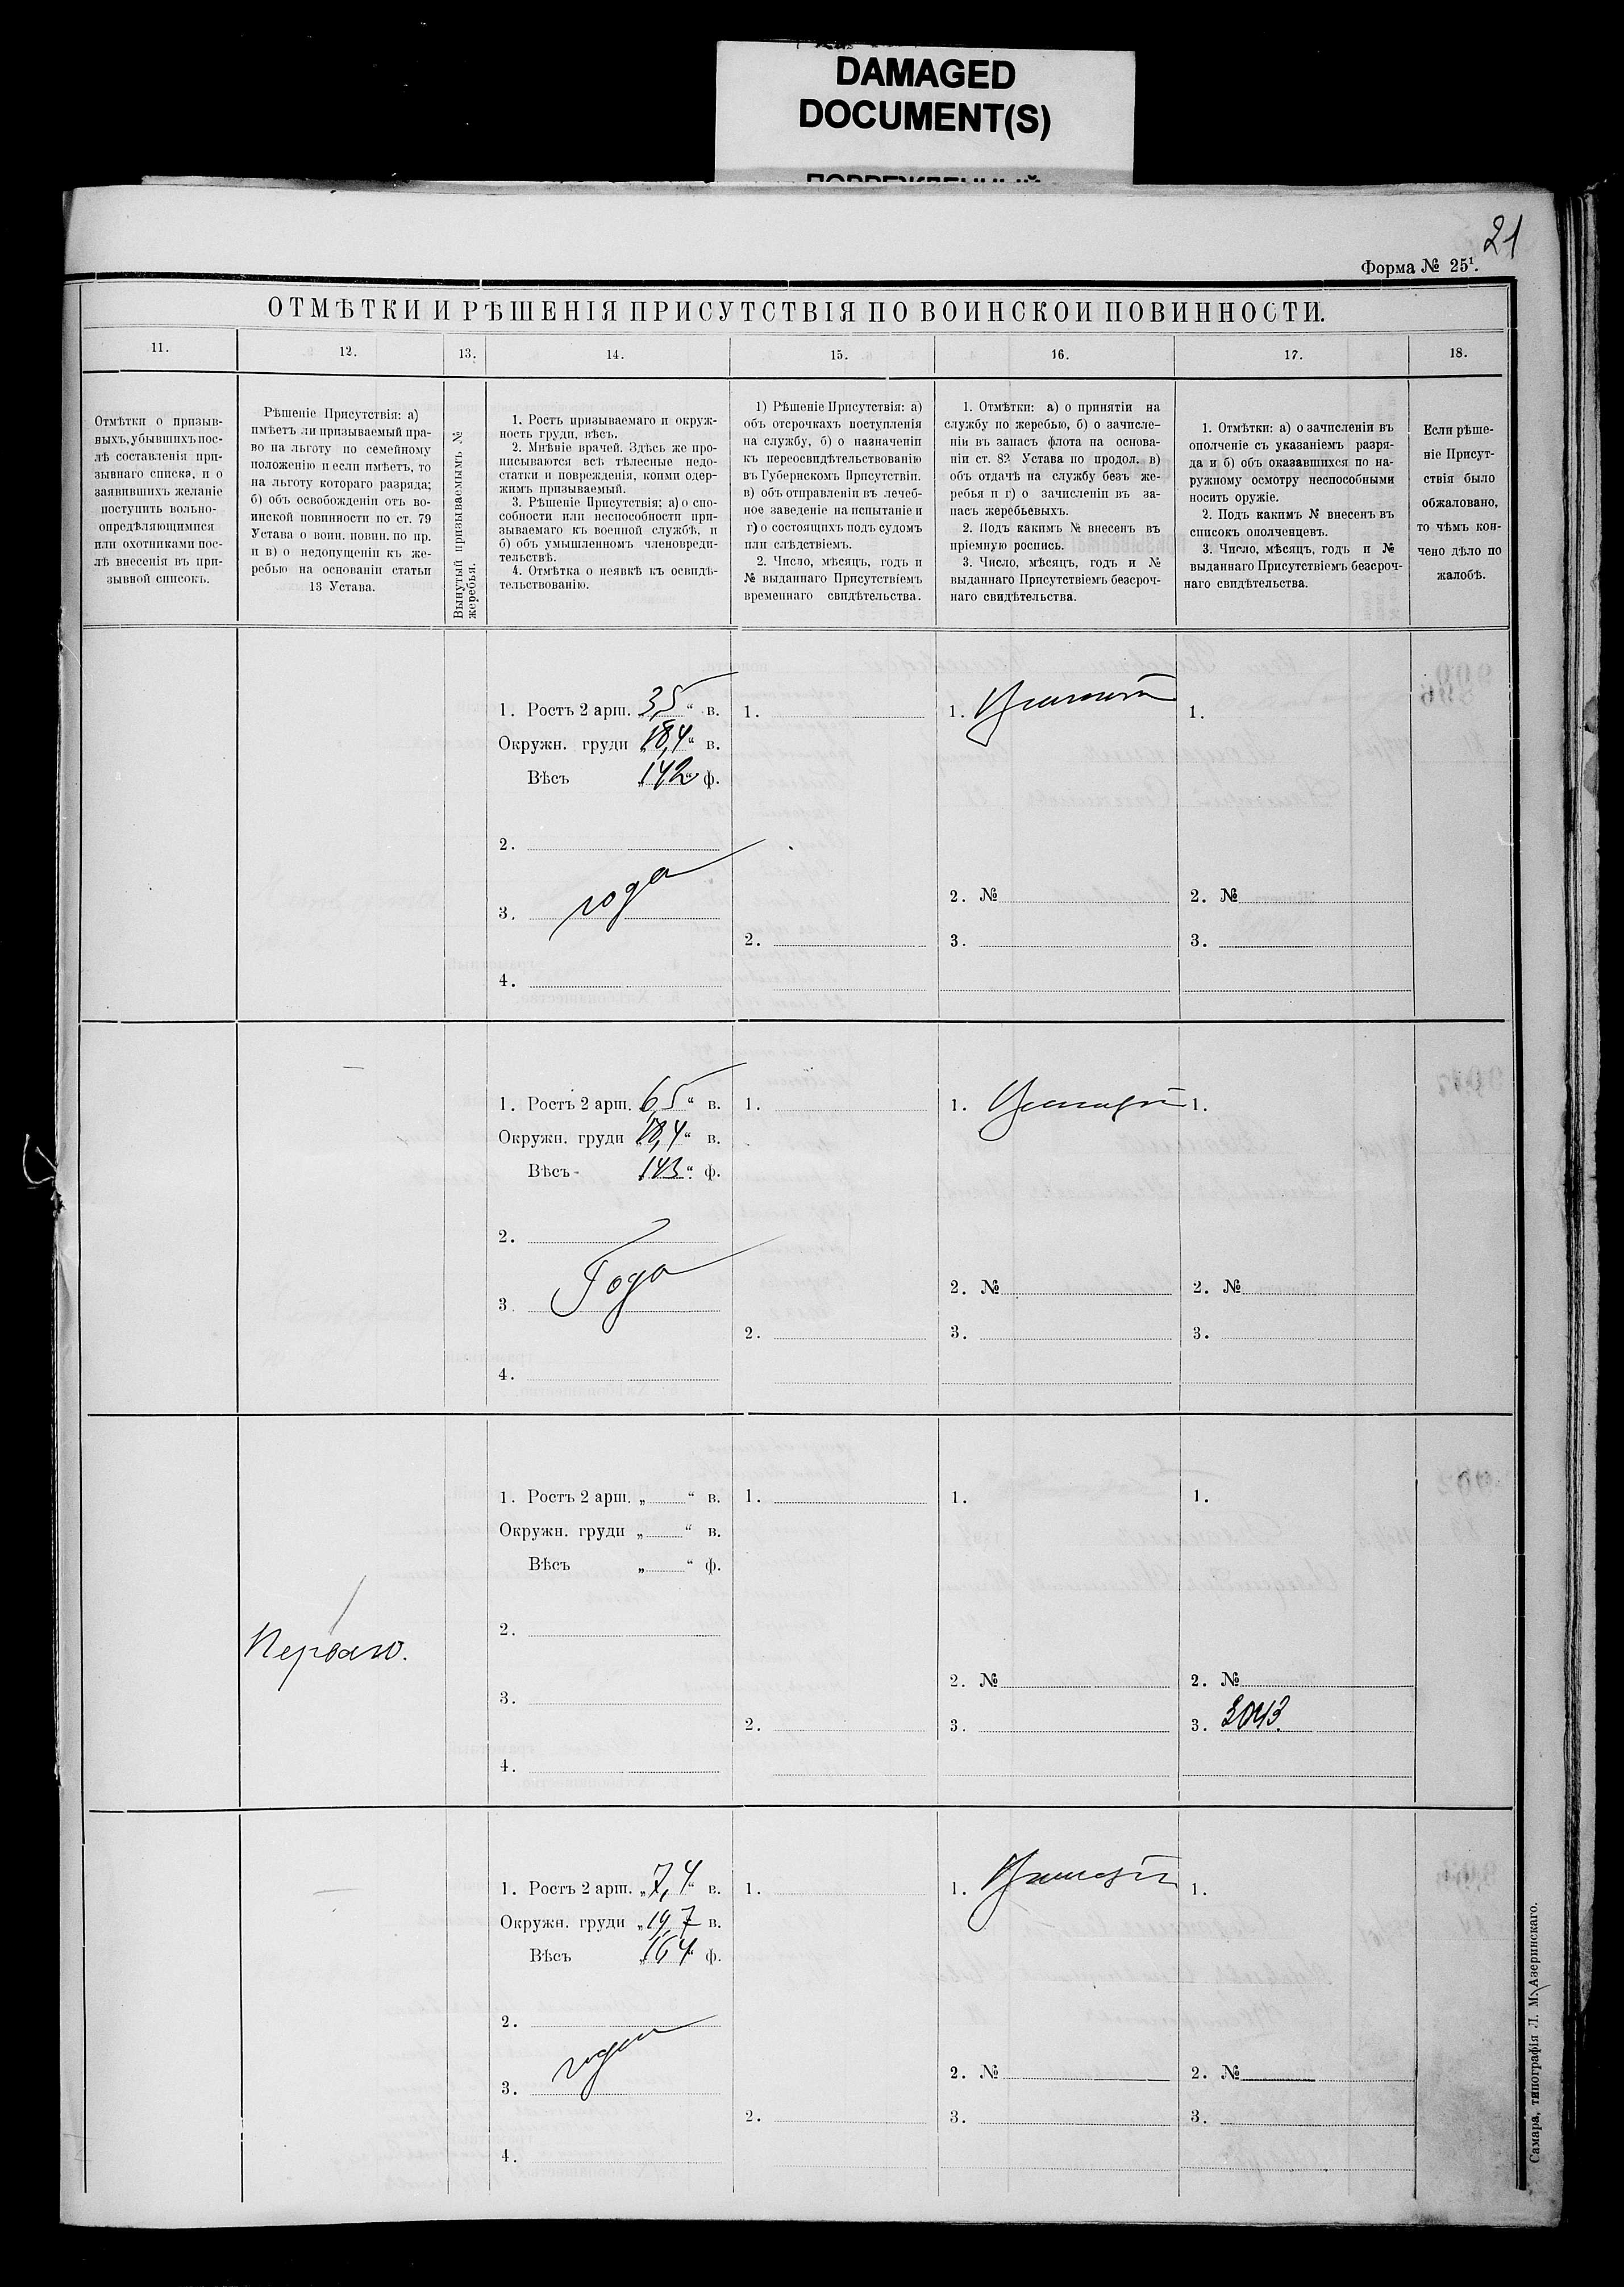 DAMAGED
DOCUMENT(S)
21
Форма № 25¹.
ОТМѢТКИ И РѢШЕНІЯ ПРИСУТСТВІЯ ПО ВОИНСКОИ ПОВИННОСТИ.
11.
12.
13.
14.
15.
16.
17.
18.
Отмѣтки о призыв-
ныхъ, убывшихъ пос-
лѣ составленія при-
зывнаго списка, и о
заявившихъ желаніе
поступить вольно-
опредѣляющимися
или охотниками пос-
лѣ внесенія въ при-
зывной списокъ.
Рѣшеніе Присутствія: а)
имѣетъ ли призываемый пра-
во на льготу по семейному
положенію и если имѣетъ, то
на льготу котораго разряда;
б) объ освобожденіи отъ во-
инской повинности по ст. 79
Устава о воин. повин. по пр.
и в) о недопущеніи къ же-
ребью на основаніи статьи
13 Устава.
Вынутый призываемымъ №
жеребья.
1. Ростъ призываемаго и окруж-
ность груди, вѣсъ.
2. Мнѣніе врачей. Здѣсь же про-
писываются всѣ тѣлесные недо-
статки и поврежденія, коими одер-
жимъ призываемый.
3. Рѣшеніе Присутствія; а) о спо-
собности или неспособности при-
зываемаго къ военной службѣ, и
б) объ умышленномъ членовреди-
тельствѣ.
4. Отмѣтка о неявкѣ къ освидѣ-
тельствованію.
1) Рѣшеніе Присутствія: а)
объ отсрочкахъ поступленія
на службу, б) о назначеніи
къ переосвидѣтельствованію
въ Губернскомъ Присутствіи.
в) объ отправленіи въ лечеб-
ное заведеніе на испытаніе и
г) о состоящихъ подъ судомъ
или слѣдствіемъ.
2. Число, мѣсяцъ, годъ и
№ выданнаго Присутствіемъ
временнаго свидѣтельства.
1. Отмѣтки: а) о принятіи на
службу по жеребью, б) о зачисле-
ніи въ запасъ флота на основа-
ніи ст. 82 Устава по продол. в)
объ отдачѣ на службу безъ же-
ребья и г) о зачисленіи въ за-
пасъ жеребьевыхъ.
2. Подъ какимъ № внесенъ въ
пріемную роспись.
3. Число, мѣсяцъ, годъ и №
выданнаго Присутствіемъ безсроч-
наго свидѣтельства.
1. Отмѣтки: а) о зачисленіи въ
ополченіе съ указаніемъ разря-
да и б) объ оказавшихся по на-
ружному осмотру неспособными
носить оружіе.
2. Подъ какимъ № внесенъ въ
списокъ ополченцевъ.
3. Число, мѣсяцъ, годъ и №
выданнаго Присутствіемъ безсроч-
наго свидѣтельства.
Если рѣше-
ніе Присут-
ствія было
обжаловано,
то чѣмъ кон-
чено дѣло по
жалобѣ.
1. Ростъ 2 арш. 3,5 “ в.
Окружн. груди „18,4“ в.
Вѣсъ „142“ ф.
2.
3. годен
4.
1.
2.
1. Принятъ
2. №
3.
1.
2. №
3.
1. Ростъ 2 арш. 6,5 “ в.
Окружн. груди „18,4“ в.
Вѣсъ „143“ ф.
2.
3. Годен
4.
1.
2.
1. Принятъ
2. №
3.
1.
2. №
3.
Перваго.
1. Ростъ 2 арш. „ “ в.
Окружн. груди „ “ в.
Вѣсъ „ “ ф.
2.
3.
4.
1.
2.
1.
2. №
3.
1.
2. №
3. 3043
1. Ростъ 2 арш. „7,4“ в.
Окружн. груди „19,7 в.
Вѣсъ „164“ ф.
2.
3. годен
4.
1.
2.
1. Принятъ
2. №
3.
1.
2. №
3.
Самара, типографія Л. М. Азеринскаго.